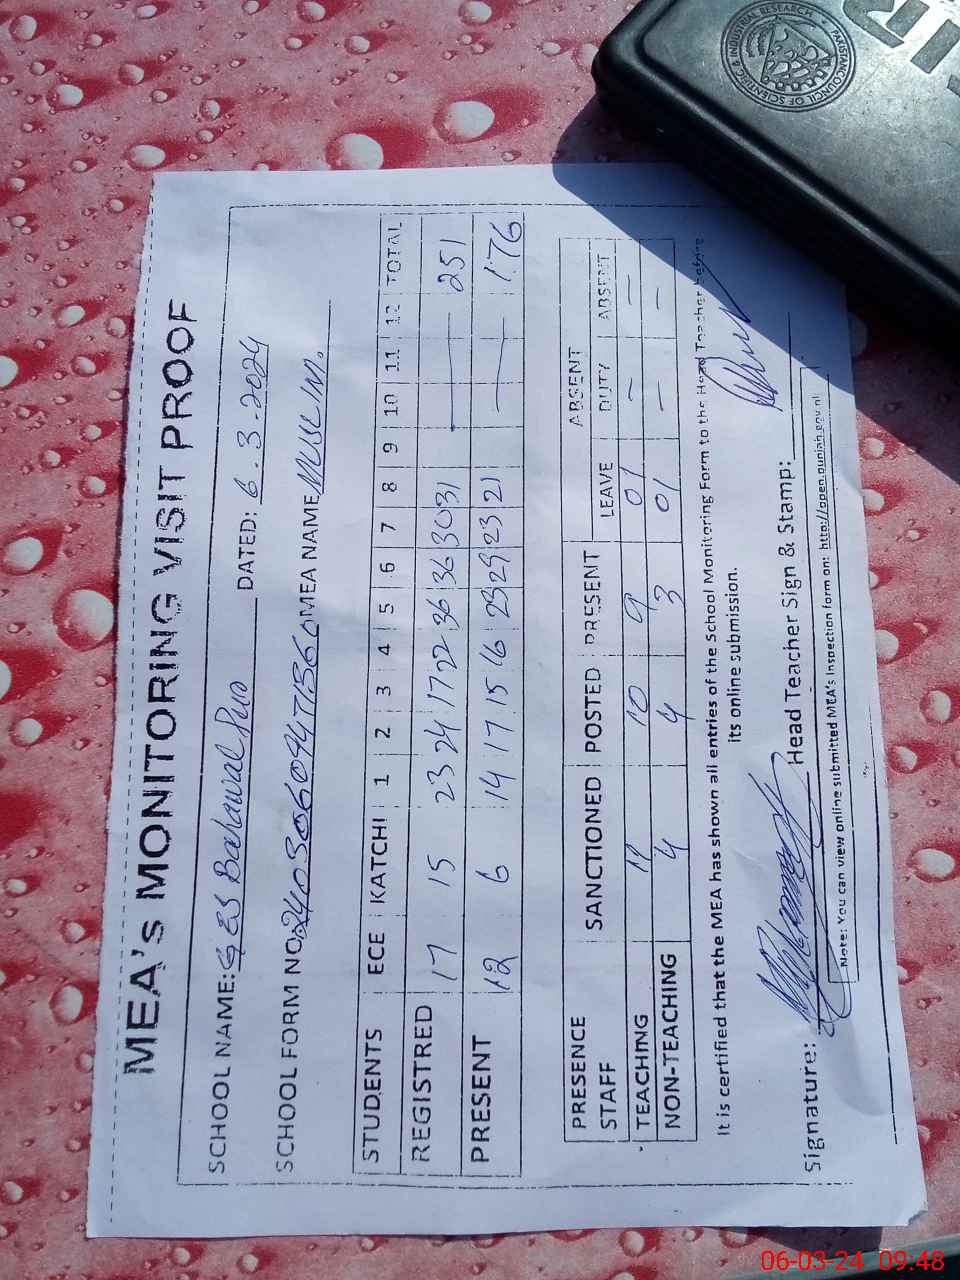 MEA's MONITORING VISIT PROOF
SCHOOL NAME: GES Bahawal Pur DATED: 6.3.2024
SCHOOL FORM NO: MEA NAME
STUDENTS ECE KATCHI 1 2 3 4 5 6 7 8 9 10 11 12 TOTAL
REGISTRED 17 15 23 24 17 22 36 36 30 31 — 251
PRESENT 12 6 14 17 15 16 23 29 23 21 — 176
PRESENCE STAFF SANCTIONED POSTED PRESENT ABSENT
LEAVE DUTY ABSENT
TEACHING 11 10 9 01 — —
NON-TEACHING 4 4 3 01 — —
It is certified that the MEA has shown all entries of the School Monitoring Form to the Head Teacher before
its online submission.
Signature: Head Teacher Sign & Stamp:
Note: You can view online submitted MEA's Inspection form on: http://open.punjab.gov.pk
PAKISTAN COUNCIL OF SCIENTIFIC & INDUSTRIAL RESEARCH
06-03-24 09:48